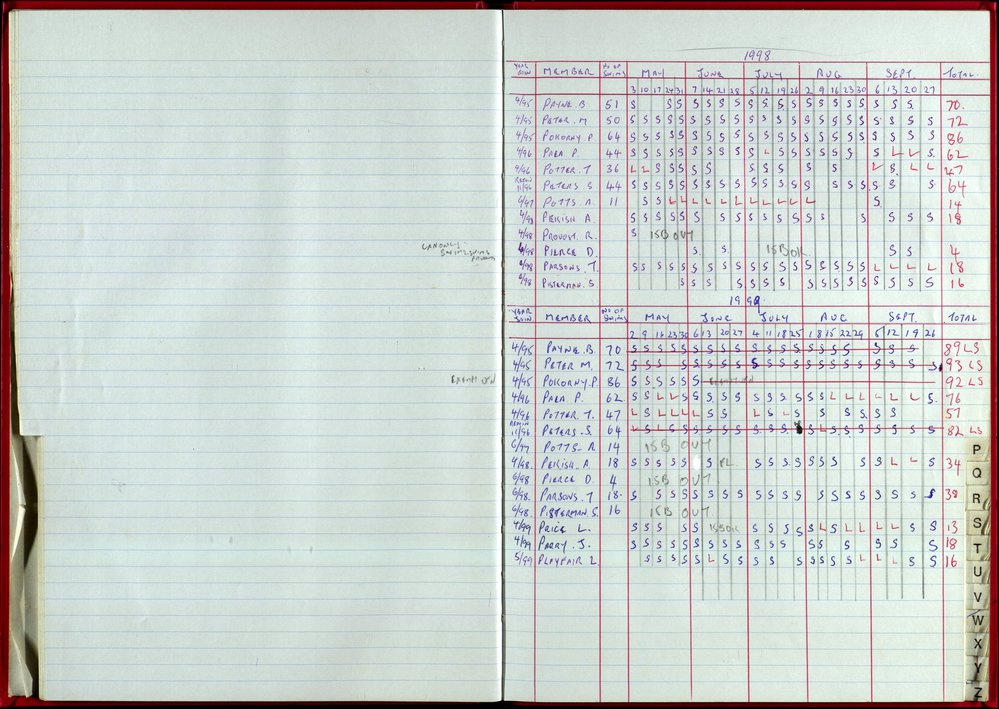 1998
YEAR JOIN MEMBER NO OF SWIMS MAY JUNE JULY AUG SEPT. TOTAL
3 10 17 24 31 7 14 21 28 5 12 19 26 2 9 16 23 30 6 13 20 27
4/95 PAYNE. B 51 S S S S S S S S S S S S S S S S S S S 70.
4/95 PETER. M 50 S S S S S S S S S S S S S S S S S S S S S S 72
4/95 POKORNY. P 64 S S S S S S S S S S S S S S S S S S S S S S 86
4/96 PARA P. 44 S S S S S S S S S L S S S S S S S L L S. 62
9/96 POTTER. T 36 L L S S S S S S S S S S L S. L L 47
REJOIN 11/96 PETERS S. 44 S S S S S S S S S S S S S S S S S S S S 64
6/97 POTTS A. 11 S S L L L L L L L L L L L S. 14
4/98 PERISH A. S S S S S S S S S S S S S S S S S S 18
4/98 PROVOST. R. S ISB OUT
6/98 PIERCE D. S. S ISB OK. S S 4
PARSONS. T. S S S S S S S S S S S S S S S S S S L L L L 18
6/98 PISTERMAN. S S S S S S S S S S S S S S S S S S 16
1999
YEAR JOIN MEMBER NO OF SWIMS MAY JUNE JULY AUG SEPT. TOTAL
2 9 16 23 30 6 13 20 27 4 11 18 25 1 8 15 22 29 5 12 19 26
4/95 PAYNE. B. 70 S S S S S S S S S S S S S S S S S S S 89 LS
4/95 PETER M. 72 S S S S S S S S S S S S S S S S S S S S S 93 LS
4/95 POKORNY. P. 86 S S S S S S 92 LS
4/96 PARA P. 62 S S L L S S S S S S S S S S L L L L L L L S. 76
4/96 POTTER. T. 47 L S L L L L S S L S L S S S S S S S 57
REJOIN 11/96 PETERS. S. 64 L S L S S S S S S S S S S S L S S S S S S S 82 LS
6/97 POTTS A 14 ISB OUT
4/98. PERISH. A. 18 S S S S S S PL. S S S S S S S S S L L S 34
6/98 PIERCE D. 4 ISB OUT
6/98. PARSONS. T 18. S S S S S S S S S S S S S S S S S S S S 38
6/98. PISTERMAN S. 16 ISB OUT
4/99 PRICE L. S S S S S ISB OK S S S S S L S L L L L L S S 13
4/99 PARRY. J. S S S S S S S S S S S S S S S S S S 18
5/99 PLAYFAIR L. S S S S S L S S S S S S S S S L L L S S 16
P
Q
R
S
T
U
V
W
X
Y
Z